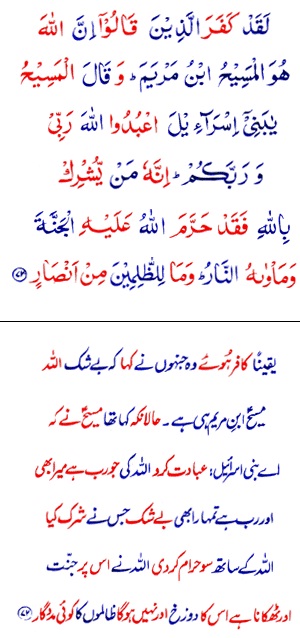 لَقَدْ كَفَرَ الَّذِيْنَ قَالُوْۤا اِنَّ اللهَ
هُوَ الْمَسِيْحُ ابْنُ مَرْيَمَ ؕ وَ قَالَ الْمَسِيْحُ
يٰبَنِيْۤ اِسْرَآءِيْلَ اعْبُدُوا اللهَ رَبِّيْ
وَ رَبَّكُمْ ؕ اِنَّهٗ مَنْ يُّشْرِكْ
بِاللهِ فَقَدْ حَرَّمَ اللهُ عَلَيْهِ الْجَنَّةَ
وَمَاْوٰىهُ النَّارُ ؕ وَمَا لِلظّٰلِمِيْنَ مِنْ اَنْصَارٍ ﴿۷۲﴾
یقینًا کافر ہوئے وہ جنہوں نے کہا کہ بے شک اللہ
مسیحؑ ابنِ مریم ہی ہے۔ حالانکہ کہا تھا مسیحؑ نے کہ
اے بنی اسرائیل: عبادت کرو اللہ کی جو رب ہے میرا بھی
اور رب ہے تمہارا بھی بے شک جس نے شرک کیا
اللہ کے ساتھ سو حرام کر دی اللہ نے اس پر جنّت
اور ٹھکانا ہے اس کا دوزخ اور نہیں ہوگا ظالموں کا کوئی مددگار ﴿۷۲﴾